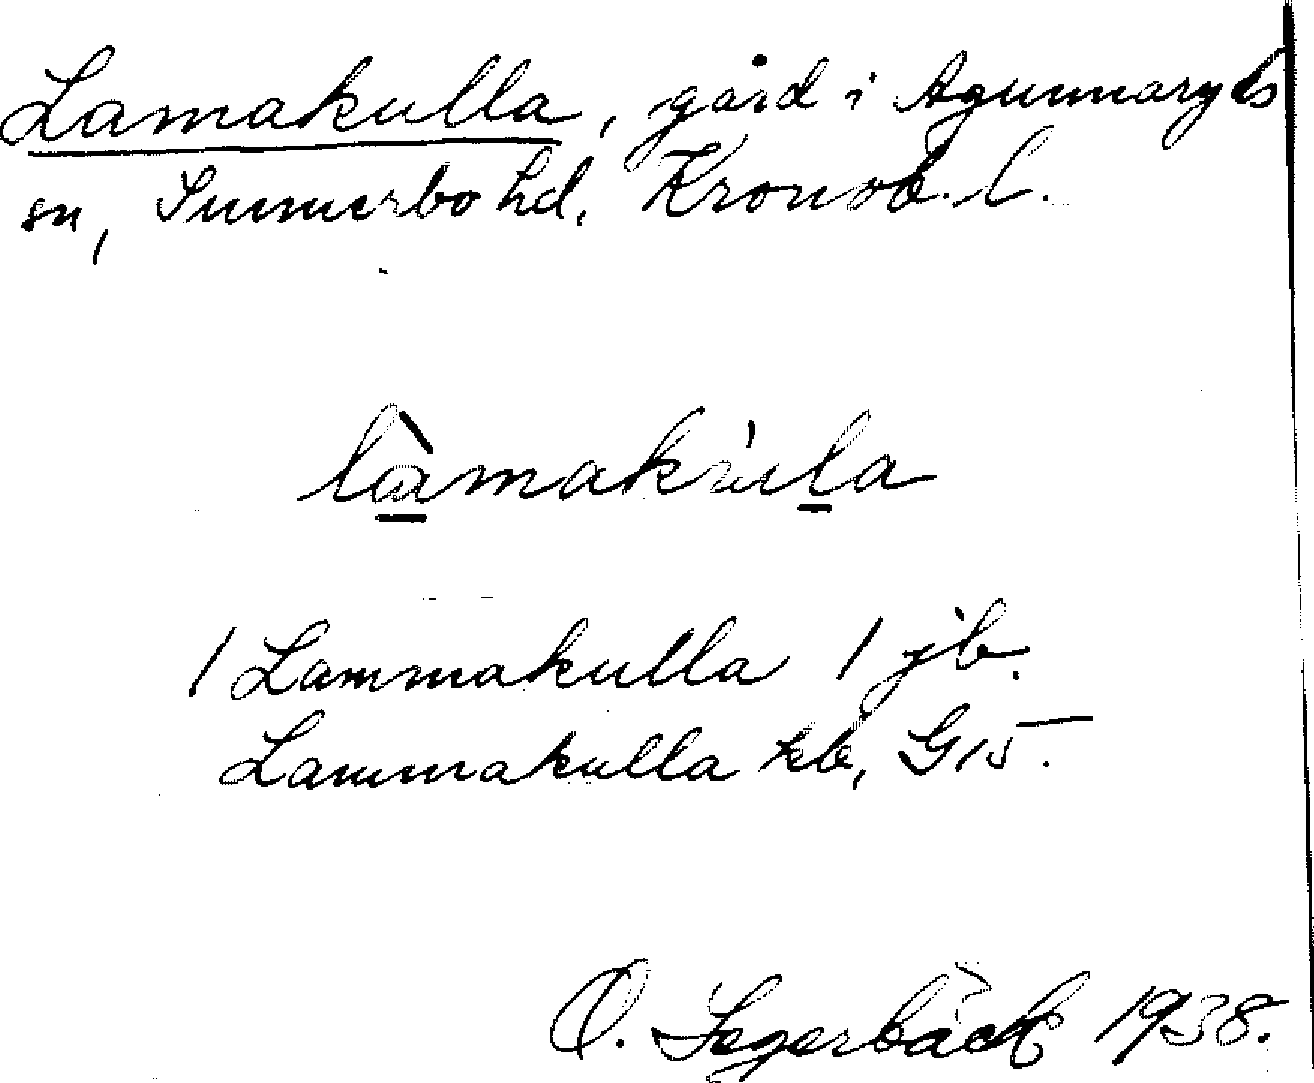 Lamakulla, gård i Agunnaryds
sn, Sunnerbo hd, Kronob. l.
làmakùla
1 Lammakulla 1 jb.
Lammakulla kb, G15.
O. Segerbäck 1938.